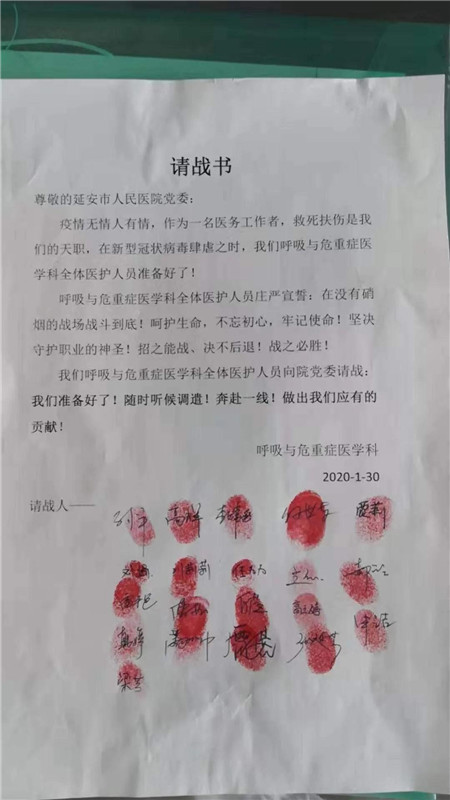 请战书
尊敬的延安市人民医院党委：
疫情无情人有情，作为一名医务工作者，救死扶伤是我
们的天职，在新型冠状病毒肆虐之时，我们呼吸与危重症医
学科全体医护人员准备好了！
呼吸与危重症医学科全体医护人员庄严宣誓：在没有硝
烟的战场战斗到底！呵护生命，不忘初心，牢记使命！坚决
守护职业的神圣！招之能战、决不后退！战之必胜！
我们呼吸与危重症医学科全体医护人员向院党委请战：
我们准备好了！随时听候调遣！奔赴一线！做出我们应有的
贡献！
呼吸与危重症医学科
2020-1-30
请战人——